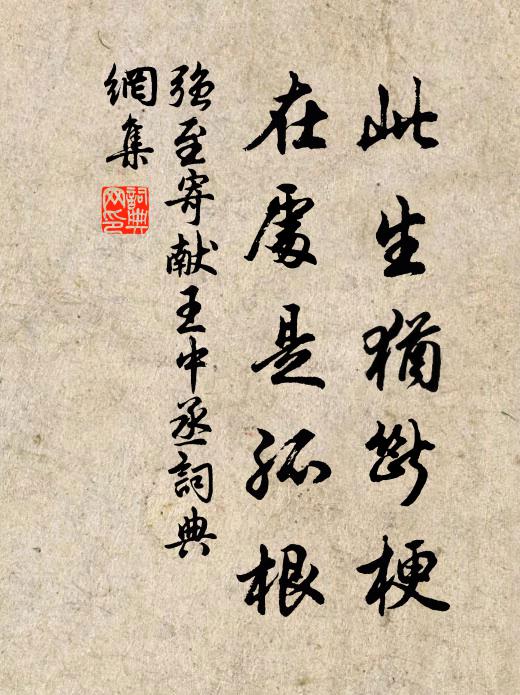 此生猶斷梗
在處是孤根
強至寄献王中丞詞典
網集
詞典网印